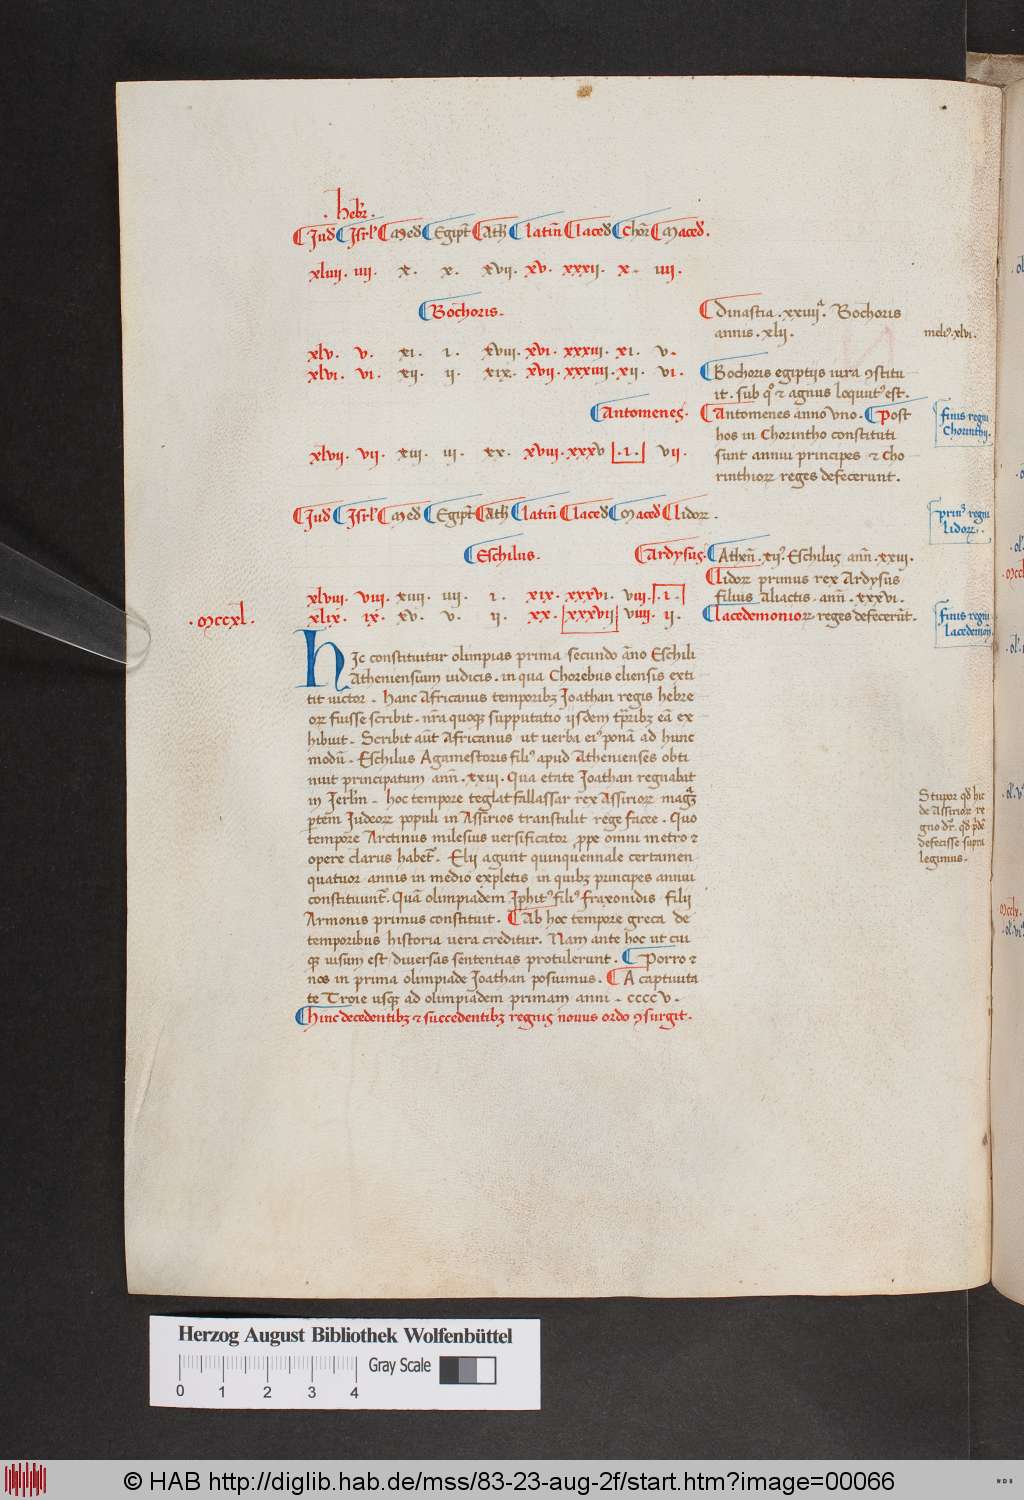 . hebr̄ .
Jud Isrl' Med Egipt̄ Ath̄ latin̄ laced Chōr Maced .
xliiii . iiii . x . x . xvii . xv . xxxii . x . iiii .
Bochoris .
Dinastia . xxiiii . Bochoris
annis . xlii .
meli' . xlvi .
xlv . v . xi . i . xviii . xvi . xxxiii . xi . v .
xlvi . vi . xii . ii . xix . xvii . xxxiiii . xii . vi .
Bochoris egiptijs iura ꝯstitu
it . sub qº ⁊ agnus loqunt' est .
Antomenes .
Antomenes anno uno . Post
hos in Chorintho constituti
sunt annui principes ⁊ Cho
rinthioꝝ reges defecerunt .
finis regni
Chorinthij .
xlvii . vii . xiii . iii . xx . xviii . xxxv . i . vii .
Jud Isrl' Med Egipt̄ Ath̄ latin̄ laced Maced lidoꝝ .
prim' regni
lidoꝝ .
Eschilus . Ardysus .
Athen̄ . xii' . Eschilus ann̄ . xxiii .
lidoꝝ primus rex Ardysus
filius Aliactis . ann̄ . xxxvi .
lacedemonioꝝ reges defecerūt .
finis regni
lacedemōn
xlviii . viii . xiiii . iiii . i . xix . xxxvi . viii . . i .
. mccxl . xlix . ix . xv . v . ii . xx . xxxvii viiii . ii .
HIc constituitur olimpias prima secundo āno Eschili
Atheniensium iudicis . in qua Chorebus eliensis exti
tit uictor . Hanc Africanus temporibꝫ Joathan regis hebre
oꝝ fuisse scribit . nr̄a quoqꝫ supputatio iisdem tp̄ribꝫ eā ex
hibuit . Scribit aūt Africanus ut uerba ei' ponā ad hunc
modū . Eschilus Agamestoris fili' apud Athenienses obti
nuit principatum ann̄ . xxiii . Qua etate Joathan regnabat
in Jerl'm . hoc tempore teglatfallassar rex Assirioꝝ magā
ꝑtem Iudeoꝝ populi in Assirios transtulit rege facee . Quo
tempore Arctinus milesius uersificator ꝓpe omni metro ⁊
opere clarus habet̄ . Elii agunt quinquennale certamen
quatuor annis in medio expletis in quibꝫ principes annui
constituunt̄ . Quā olimpiadem Iphit' fili' fraxonidis filij
Armonis primus constituit . Ab hoc tempore greca de
temporibus historia uera creditur . Nam ante hoc ut cui
qꝫ uisum est diuersas sententias protulerunt . Porro ⁊
nos in prima olimpiade Joathan posuimus . A captiuita
te Troie usqꝫ ad olimpiadem primam anni . cccc v .
hinc decedentibꝫ ⁊ succedentibꝫ regnis nouus ordo ꝯsurgit .
Stupor qd̄ hic
de Assirioꝝ re
gno dr̄ . qd̄ pridē
defecisse supra
legimus .
Herzog August Bibliothek Wolfenbüttel
Gray Scale
0 1 2 3 4
© HAB http://diglib.hab.de/mss/83-23-aug-2f/start.htm?image=00066